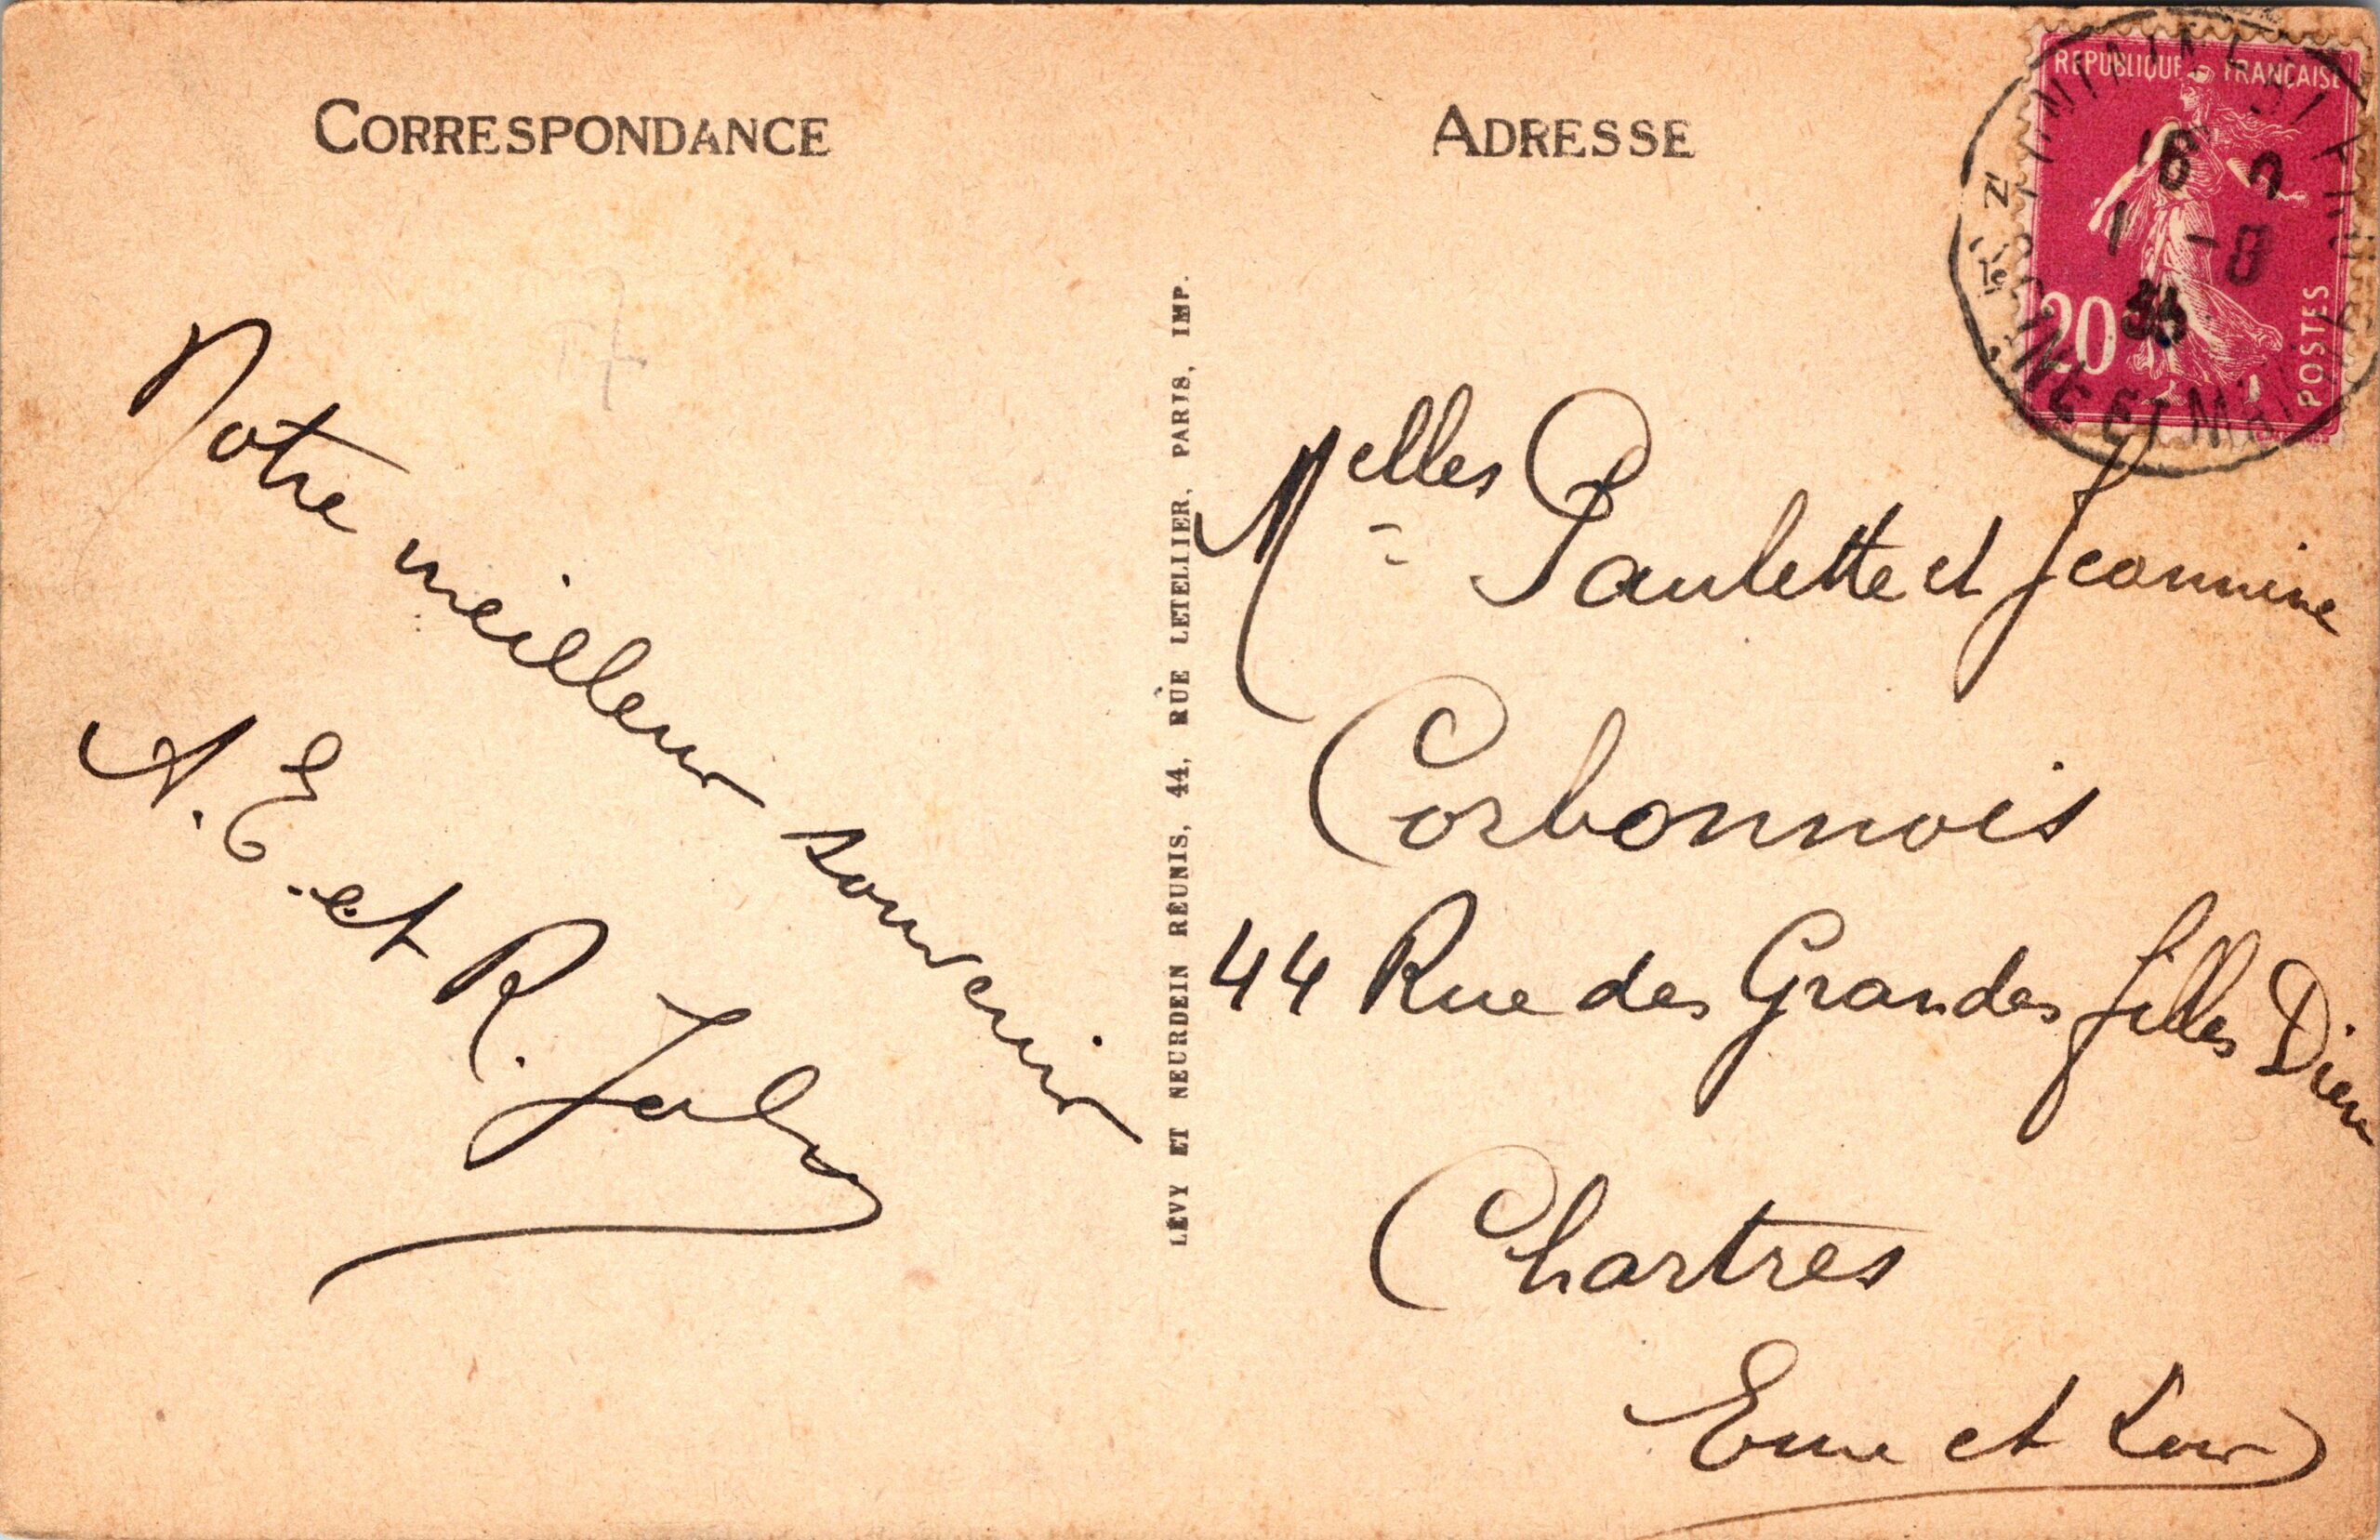 CORRESPONDANCE
Notre meilleur souvenir
A. E. et R.
LÉVY ET NEURDEIN RÉUNIS, 44, RUE LETELLIER, PARIS, IMP.
ADRESSE
REPUBLIQUE FRANÇAISE
20
POSTES
SEINE ET MARNE
Melles Paulette et Jeannine
Corbonnois
44 Rue des Grandes filles Dieu
Chartres
Eure et Loir